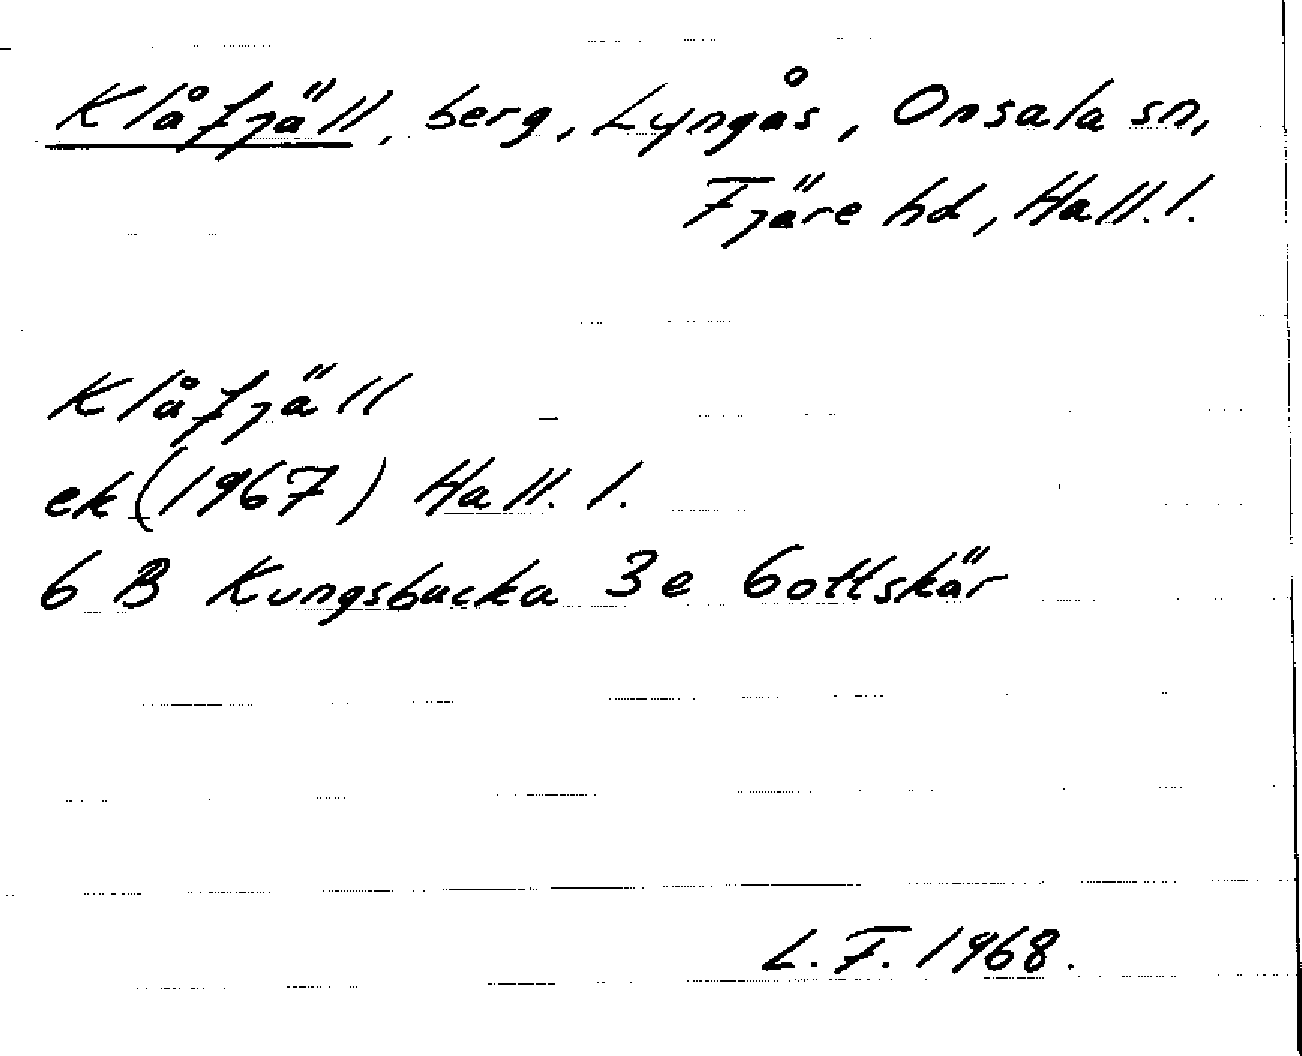 Klåfjäll, berg, Lyngås, Onsala sn,
Fjäre hd, Hall. l.
Klåfjäll
ek (1967) Hall. l.
6 B Kungsbacka 3e Gottskär
L. F. 1968.